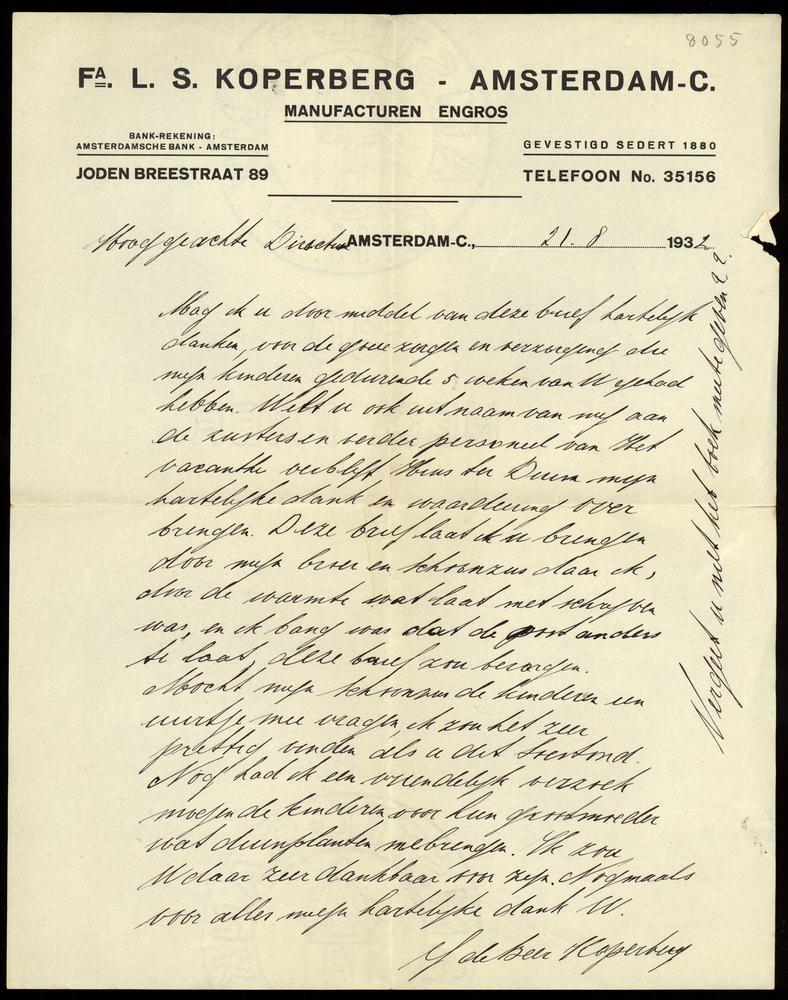 8055
FA. L. S. KOPERBERG - AMSTERDAM-C.
MANUFACTUREN ENGROS
BANK-REKENING:
AMSTERDAMSCHE BANK - AMSTERDAM
JODEN BREESTRAAT 89
GEVESTIGD SEDERT 1880
TELEFOON No. 35156
Hooggeachte Directrice AMSTERDAM-C., 21. 8 1932
Mag ik u door middel van deze brief hartelijk
danken, voor de goede zorgen en verzorging die
mijn kinderen gedurende 5 weken van U gehad
hebben. Wilt u ook uit naam van mij aan
de zusters en verder personeel van Het
vacantie verblijf Huis ter Duin mijn
hartelijke dank en waardeering over
brengen. Deze brief laat ik u brengen
door mijn broer en schoonzus daar ik,
door de warmte wat laat met schrijven
was, en ik bang was dat de post anders
te laat, deze brief zou bezorgen.
Mocht mijn schoonzus de kinderen een
uurtje mee vragen, ik zou het zeer
prettig vinden als u dit toestond.
Nog had ik een vriendelijk verzoek
mogen de kinderen voor hun grootmoeder
wat duinplanten mebrengen. Ik zou
U daar zeer dankbaar voor zijn. Nogmaals
voor alles mijn hartelijke dank U.
de Beer Koperberg
Vergeet u niet het boek mee te geven